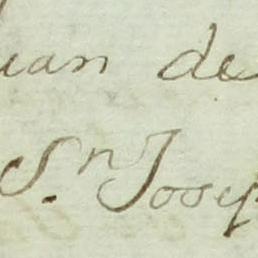 uan de
S.n Josep